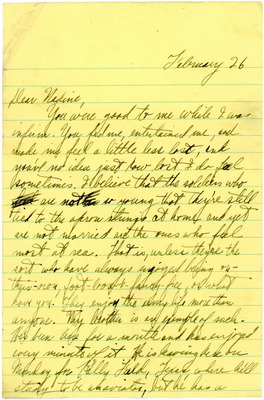 February 26
Dear Nadine,
You were good to me while I was
inform. You fed me, entertained me, and
made me feel a little less lost, and
you've no idea just how lost I do feel
sometimes. I believe that the soldiers who
are not so young that they're still
tied to the apron strings at home and yet
are not married are the ones who feel
most at sea. That is, unless they're the
sort who have always enjoyed being on-
their-own, foot-loose & fancy-free, or what
have you. They enjoy the army life more than
anyone. My brother is an example of such.
He's been here for a month and has enjoyed
every minute of it. He is leaving here on
Monday for Kelly Field, Texas, where he'll
study to be an aviator, but he has a